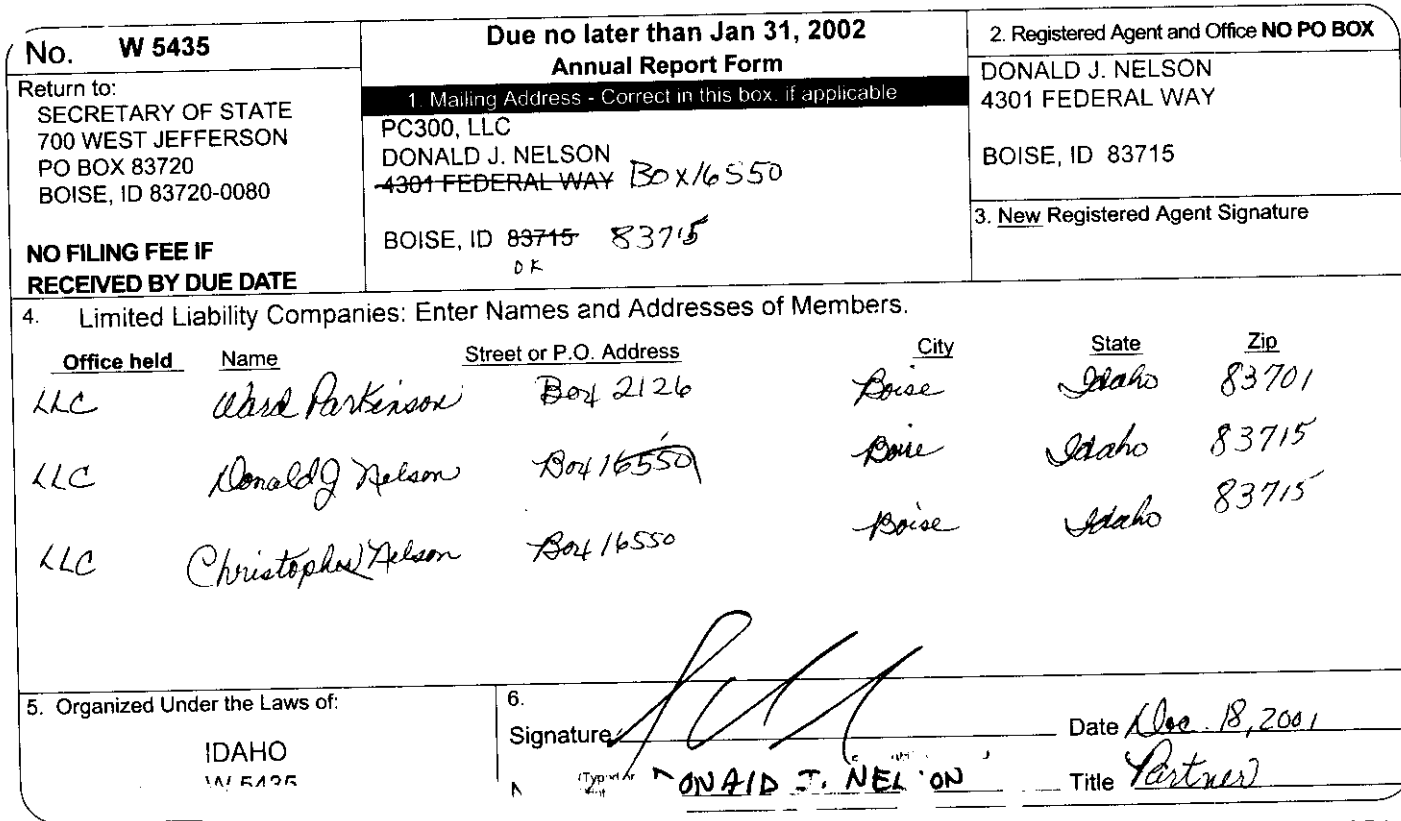 No. W 5435
Return to:
SECRETARY OF STATE
700 WEST JEFFERSON
PO BOX 83720
BOISE, ID 83720-0080
NO FILING FEE IF
RECEIVED BY DUE DATE
Due no later than Jan 31, 2002
Annual Report Form
1. Mailing Address - Correct in this box, if applicable
PC300, LLC
DONALD J. NELSON
4301 FEDERAL WAY BOX 16550
BOISE, ID 83715 83715
OK
2. Registered Agent and Office NO PO BOX
DONALD J. NELSON
4301 FEDERAL WAY
BOISE, ID 83715
3. New Registered Agent Signature
4. Limited Liability Companies: Enter Names and Addresses of Members.
Office held Name Street or P.O. Address City State Zip
LLC Ward Parkinson Box 2126 Boise Idaho 83701
LLC Donald J Nelson Box 16550 Boise Idaho 83715
LLC Christopher Nelson Box 16550 Boise Idaho 83715
5. Organized Under the Laws of:
IDAHO
W 5435
6.
Signature Date Dec. 18, 2001
DONALD J. NELSON Title Partner